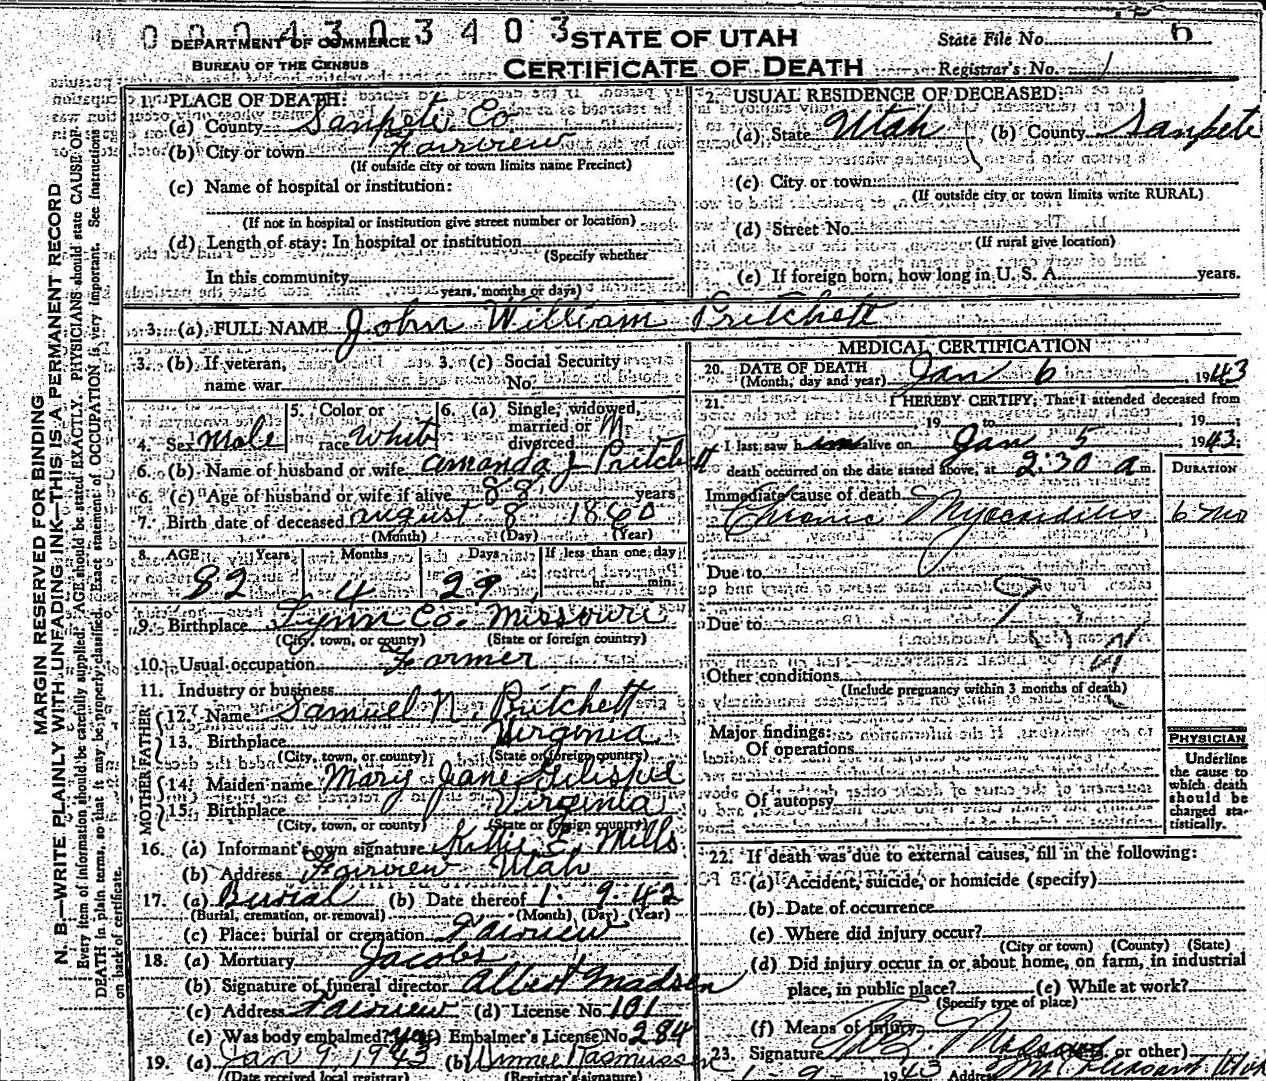 0 0 0 4 3 0 3 4 0 3
DEPARTMENT OF COMMERCE
BUREAU OF THE CENSUS
STATE OF UTAH
CERTIFICATE OF DEATH
State File No. 6
Registrar's No. 1
MARGIN RESERVED FOR BINDING
N. B.—WRITE PLAINLY WITH UNFADING INK—THIS IS A PERMANENT RECORD
Every item of information should be carefully supplied. AGE should be stated EXACTLY. PHYSICIANS should state CAUSE OF
DEATH in plain terms, so that it may be properly classified. Exact statement of OCCUPATION is very important. See instructions
on back of certificate.
1. PLACE OF DEATH:
(a) County Sanpete Co.
(b) City or town Fairview
(If outside city or town limits name Precinct)
(c) Name of hospital or institution:
(If not in hospital or institution give street number or location)
(d) Length of stay: In hospital or institution
(Specify whether
In this community
years, months or days)
2. USUAL RESIDENCE OF DECEASED:
(a) State Utah (b) County Sanpete
(c) City or town
(If outside city or town limits write RURAL)
(d) Street No.
(If rural give location)
(e) If foreign born, how long in U. S. A. years.
3. (a) FULL NAME John William Pritchett
3. (b) If veteran,
name war
3. (c) Social Security
No.
4. Sex Male
5. Color or
race White
6. (a) Single, widowed,
married or
divorced M.
6. (b) Name of husband or wife Amanda J Pritchett
6. (c) Age of husband or wife if alive years
7. Birth date of deceased August 8 1860
(Month) (Day) (Year)
8. AGE Years Months Days If less than one day
82 4 29 hr. min.
9. Birthplace Lynn Co. Missouri
(City, town, or county) (State or foreign country)
10. Usual occupation Farmer
11. Industry or business
FATHER
12. Name Samuel N. Pritchett
13. Birthplace Virginia
(City, town, or county) (State or foreign country)
MOTHER
14. Maiden name Mary Jane Gilispie
15. Birthplace Virginia
(City, town, or county) (State or foreign country)
16. (a) Informant's own signature Kittie E. Mills
(b) Address Fairview Utah
17. (a) Burial (b) Date thereof 1. 9. 42
(Burial, cremation, or removal) (Month) (Day) (Year)
(c) Place: burial or cremation Fairview
18. (a) Mortuary Jacobs
(b) Signature of funeral director Albert Madsen
(c) Address Fairview (d) License No. 101
(e) Was body embalmed? yes (f) Embalmer's License No. 284
19. (a) Jan 9 1943 (b) Winnie Rasmussen
(Date received local registrar) (Registrar's signature)
MEDICAL CERTIFICATION
20. DATE OF DEATH
(Month, day and year) Jan 6, 1943
21. I HEREBY CERTIFY, That I attended deceased from
, 19 to , 19
I last saw h im alive on Jan 5 1943;
death occurred on the date stated above, at 2:30 a m.
DURATION
Immediate cause of death
Chronic Myocarditis 6 mo
Due to
Due to
Other conditions
(Include pregnancy within 3 months of death)
Major findings:
Of operations
Of autopsy
PHYSICIAN
Underline
the cause to
which death
should be
charged sta-
tistically.
22. If death was due to external causes, fill in the following:
(a) Accident, suicide, or homicide (specify)
(b) Date of occurrence
(c) Where did injury occur?
(City or town) (County) (State)
(d) Did injury occur in or about home, on farm, in industrial
place, in public place? (e) While at work?
(Specify type of place)
(f) Means of injury
23. Signature or other)
1 - 9 - 1943 Address Mt Pleasant Utah